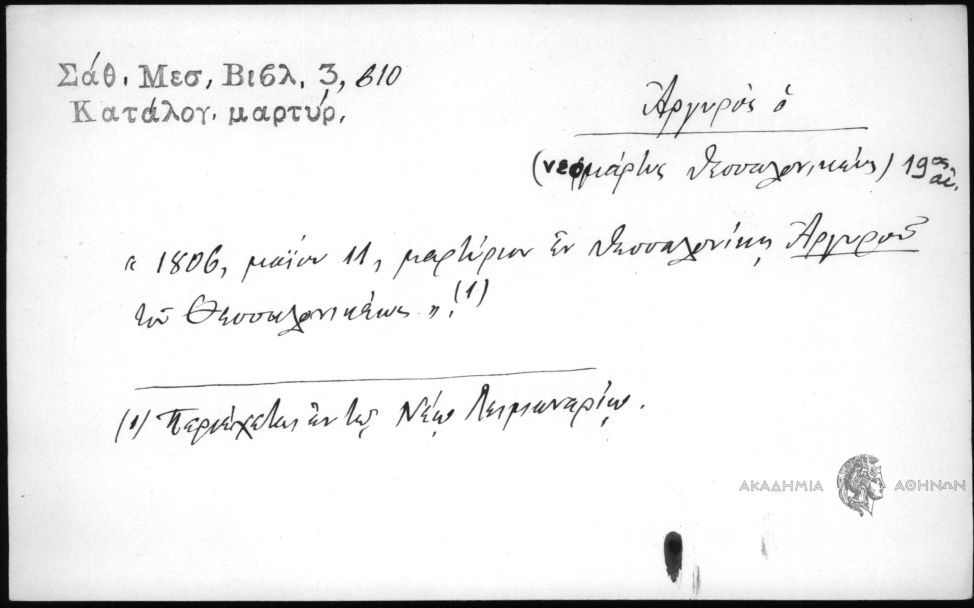 Σάθ. Μεσ, Βιβλ, 3, 610
Κατάλογ. μαρτύρ,
Ἀργυρὸς ὁ
(νεομάρτυς Θεσσαλονικεύς) 19ος αἰ.
« 1806, μαΐου 11, μαρτύριον ἐν Θεσσαλονίκῃ Ἀργυροῦ
τοῦ Θεσσαλονικέως ».(1)
(1) Περιέχεται ἐν τῷ Νέῳ Λειμωναρίῳ.
ΑΚΑΔΗΜΙΑ ΑΘΗΝΩΝ